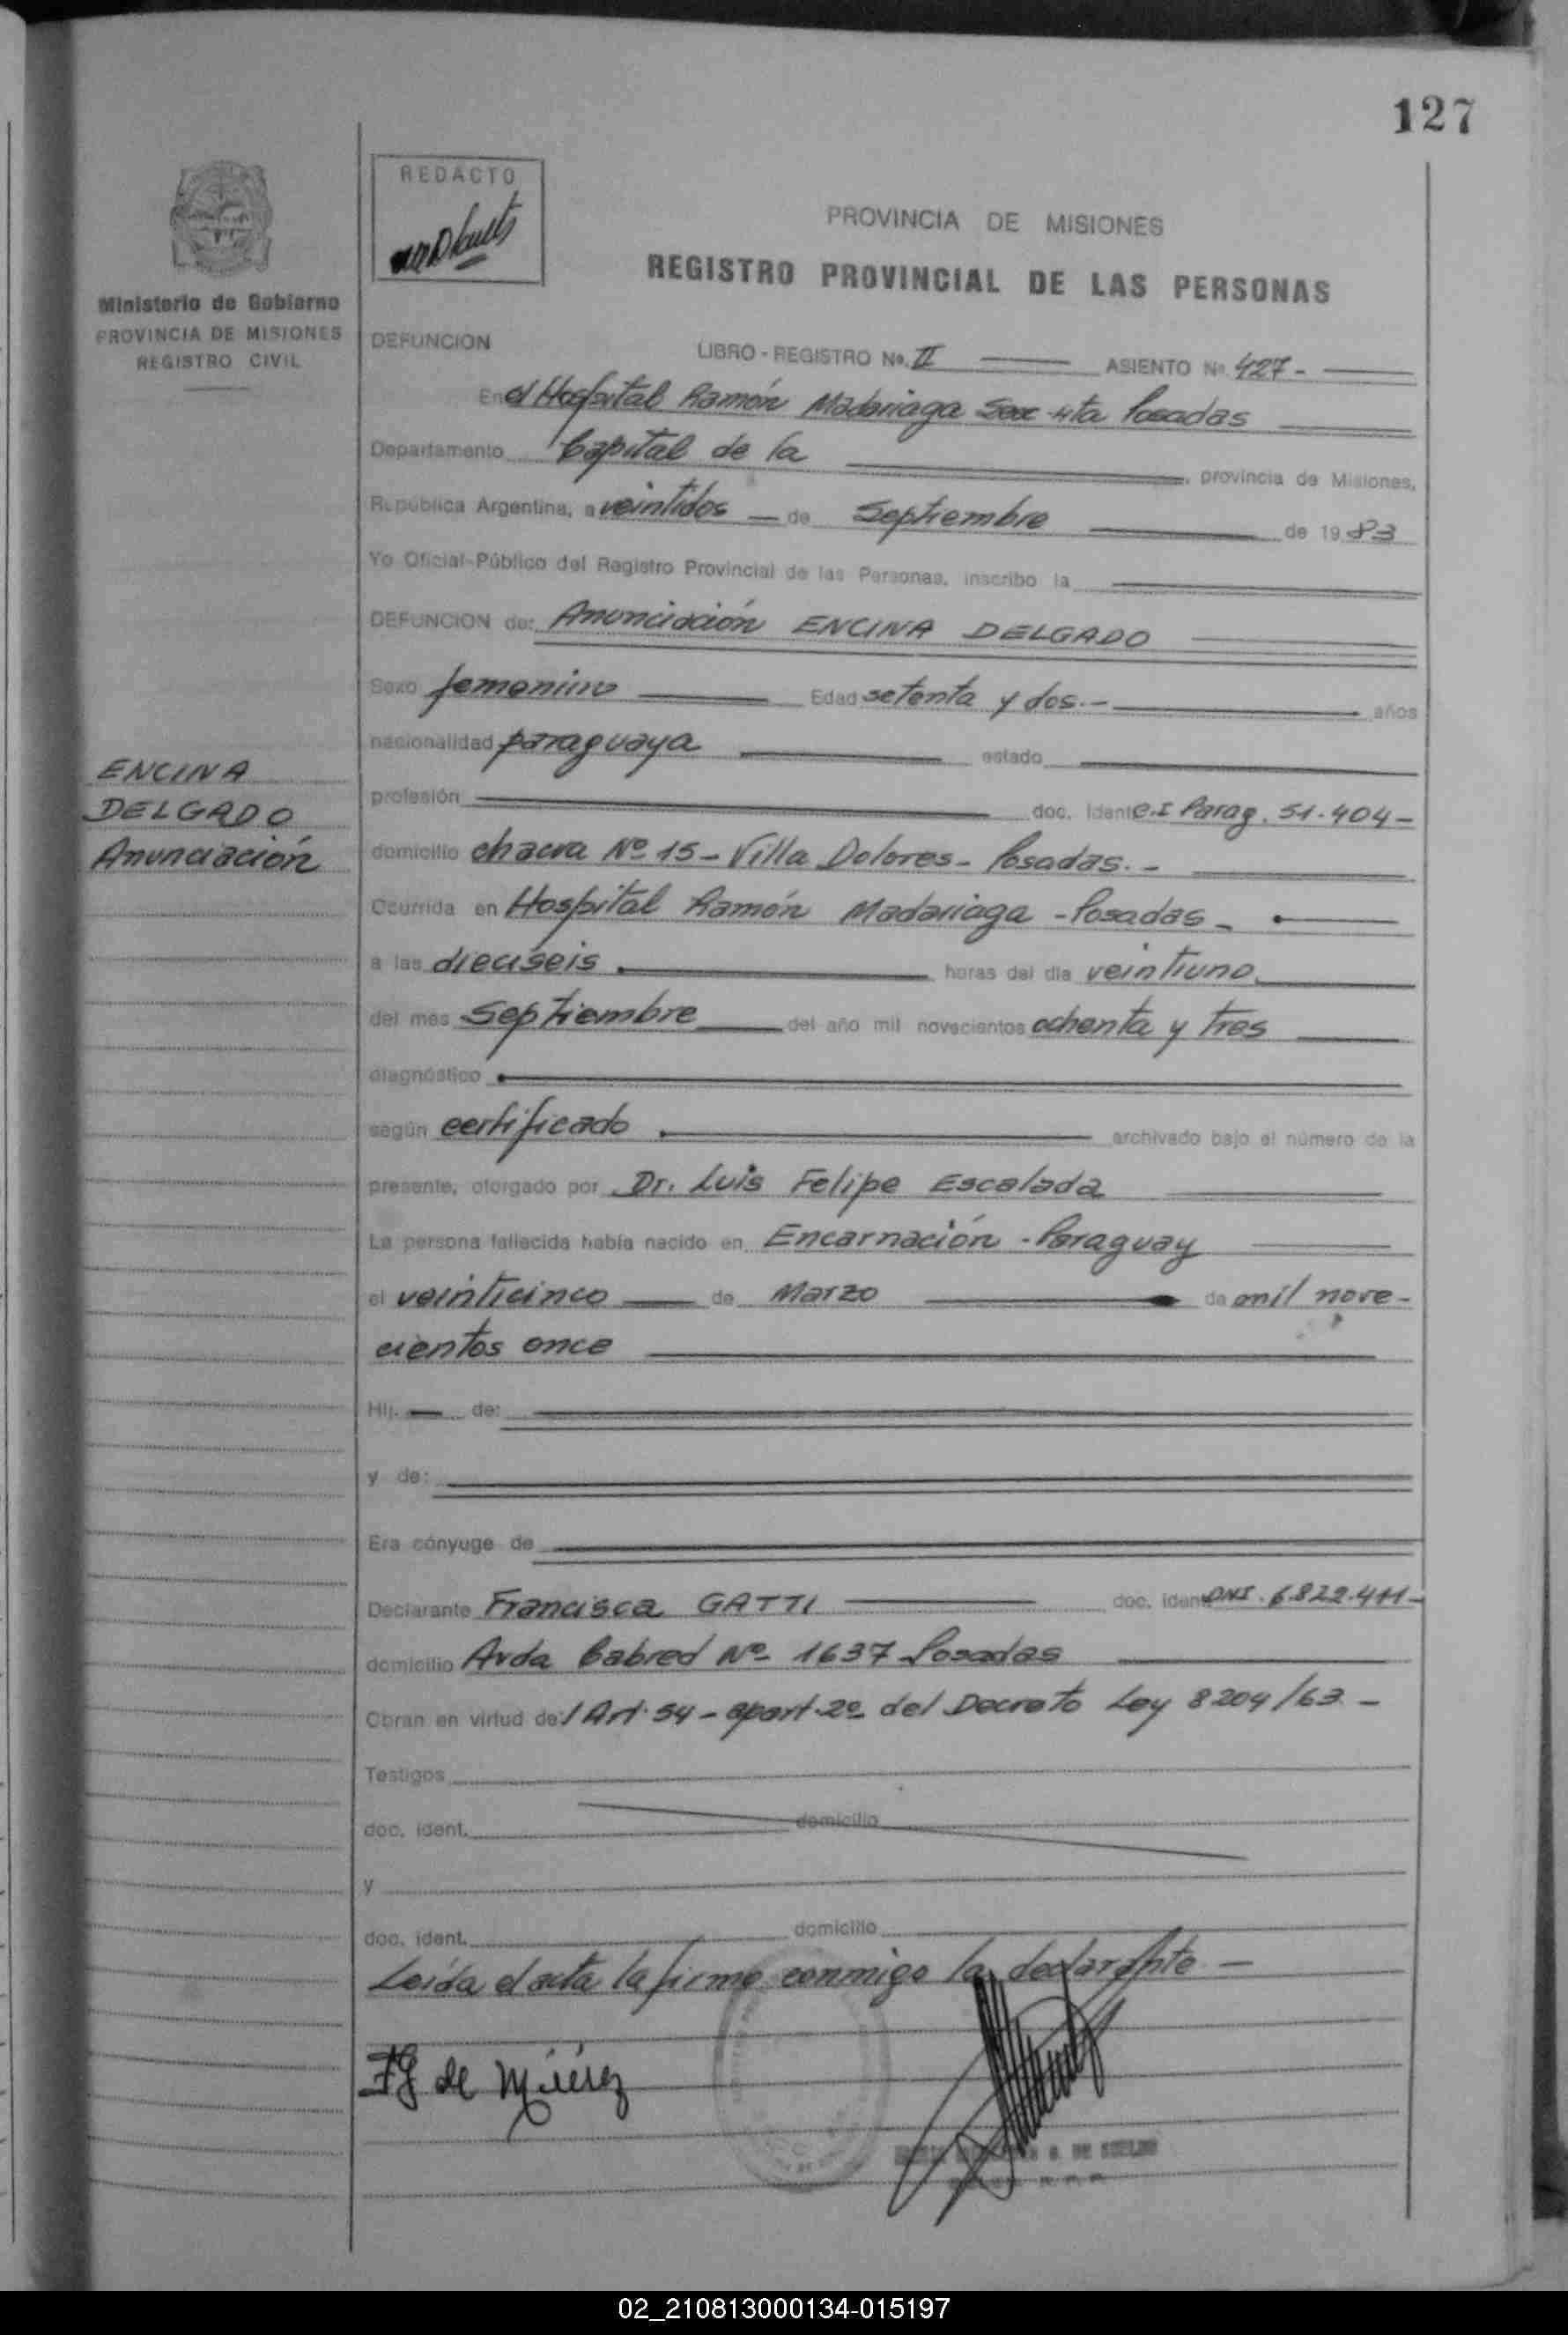 127
REDACTO
PROVINCIA DE MISIONES
REGISTRO PROVINCIAL DE LAS PERSONAS
Ministerio de Gobierno
PROVINCIA DE MISIONES
REGISTRO CIVIL
DEFUNCION
LIBRO - REGISTRO No. II ASIENTO No. 427-
En el Hospital Ramón Madariaga Secc 4ta Posadas
Departamento Capital de la , provincia de Misiones,
República Argentina, a veintidos de Septiembre de 1983
Yo Oficial Público del Registro Provincial de las Personas, inscribo la
DEFUNCION de: Anunciación ENCINA DELGADO
Sexo femenino Edad setenta y dos.- años
nacionalidad paraguaya estado
ENCINA
DELGADO
Anunciación
profesión doc. ident C.I Parag. 51.404-
domicilio chacra Nº 15 - Villa Dolores - Posadas.-
Ocurrida en Hospital Ramón Madariaga - Posadas -
a las dieciseis horas del día veintiuno
del mes Septiembre del año mil novecientos ochenta y tres
diagnóstico
según certificado archivado bajo el número de la
presente, otorgado por Dr. Luis Felipe Escalada
La persona fallecida había nacido en Encarnación - Paraguay
el veinticinco de Marzo de mil nove-
cientos once
Hij. de:
y de:
Era cónyuge de
Declarante Francisca GATTI doc. ident DNI. 6.822.411-
domicilio Avda Cabred Nº 1637 Posadas
Obran en virtud del Art. 54 - apart. 2º del Decreto Ley 8204/63 -
Testigos
doc. ident. domicilio
y
doc. ident. domicilio
Leída el acta la firma conmigo la declarante -
FG de
02_210813000134-015197